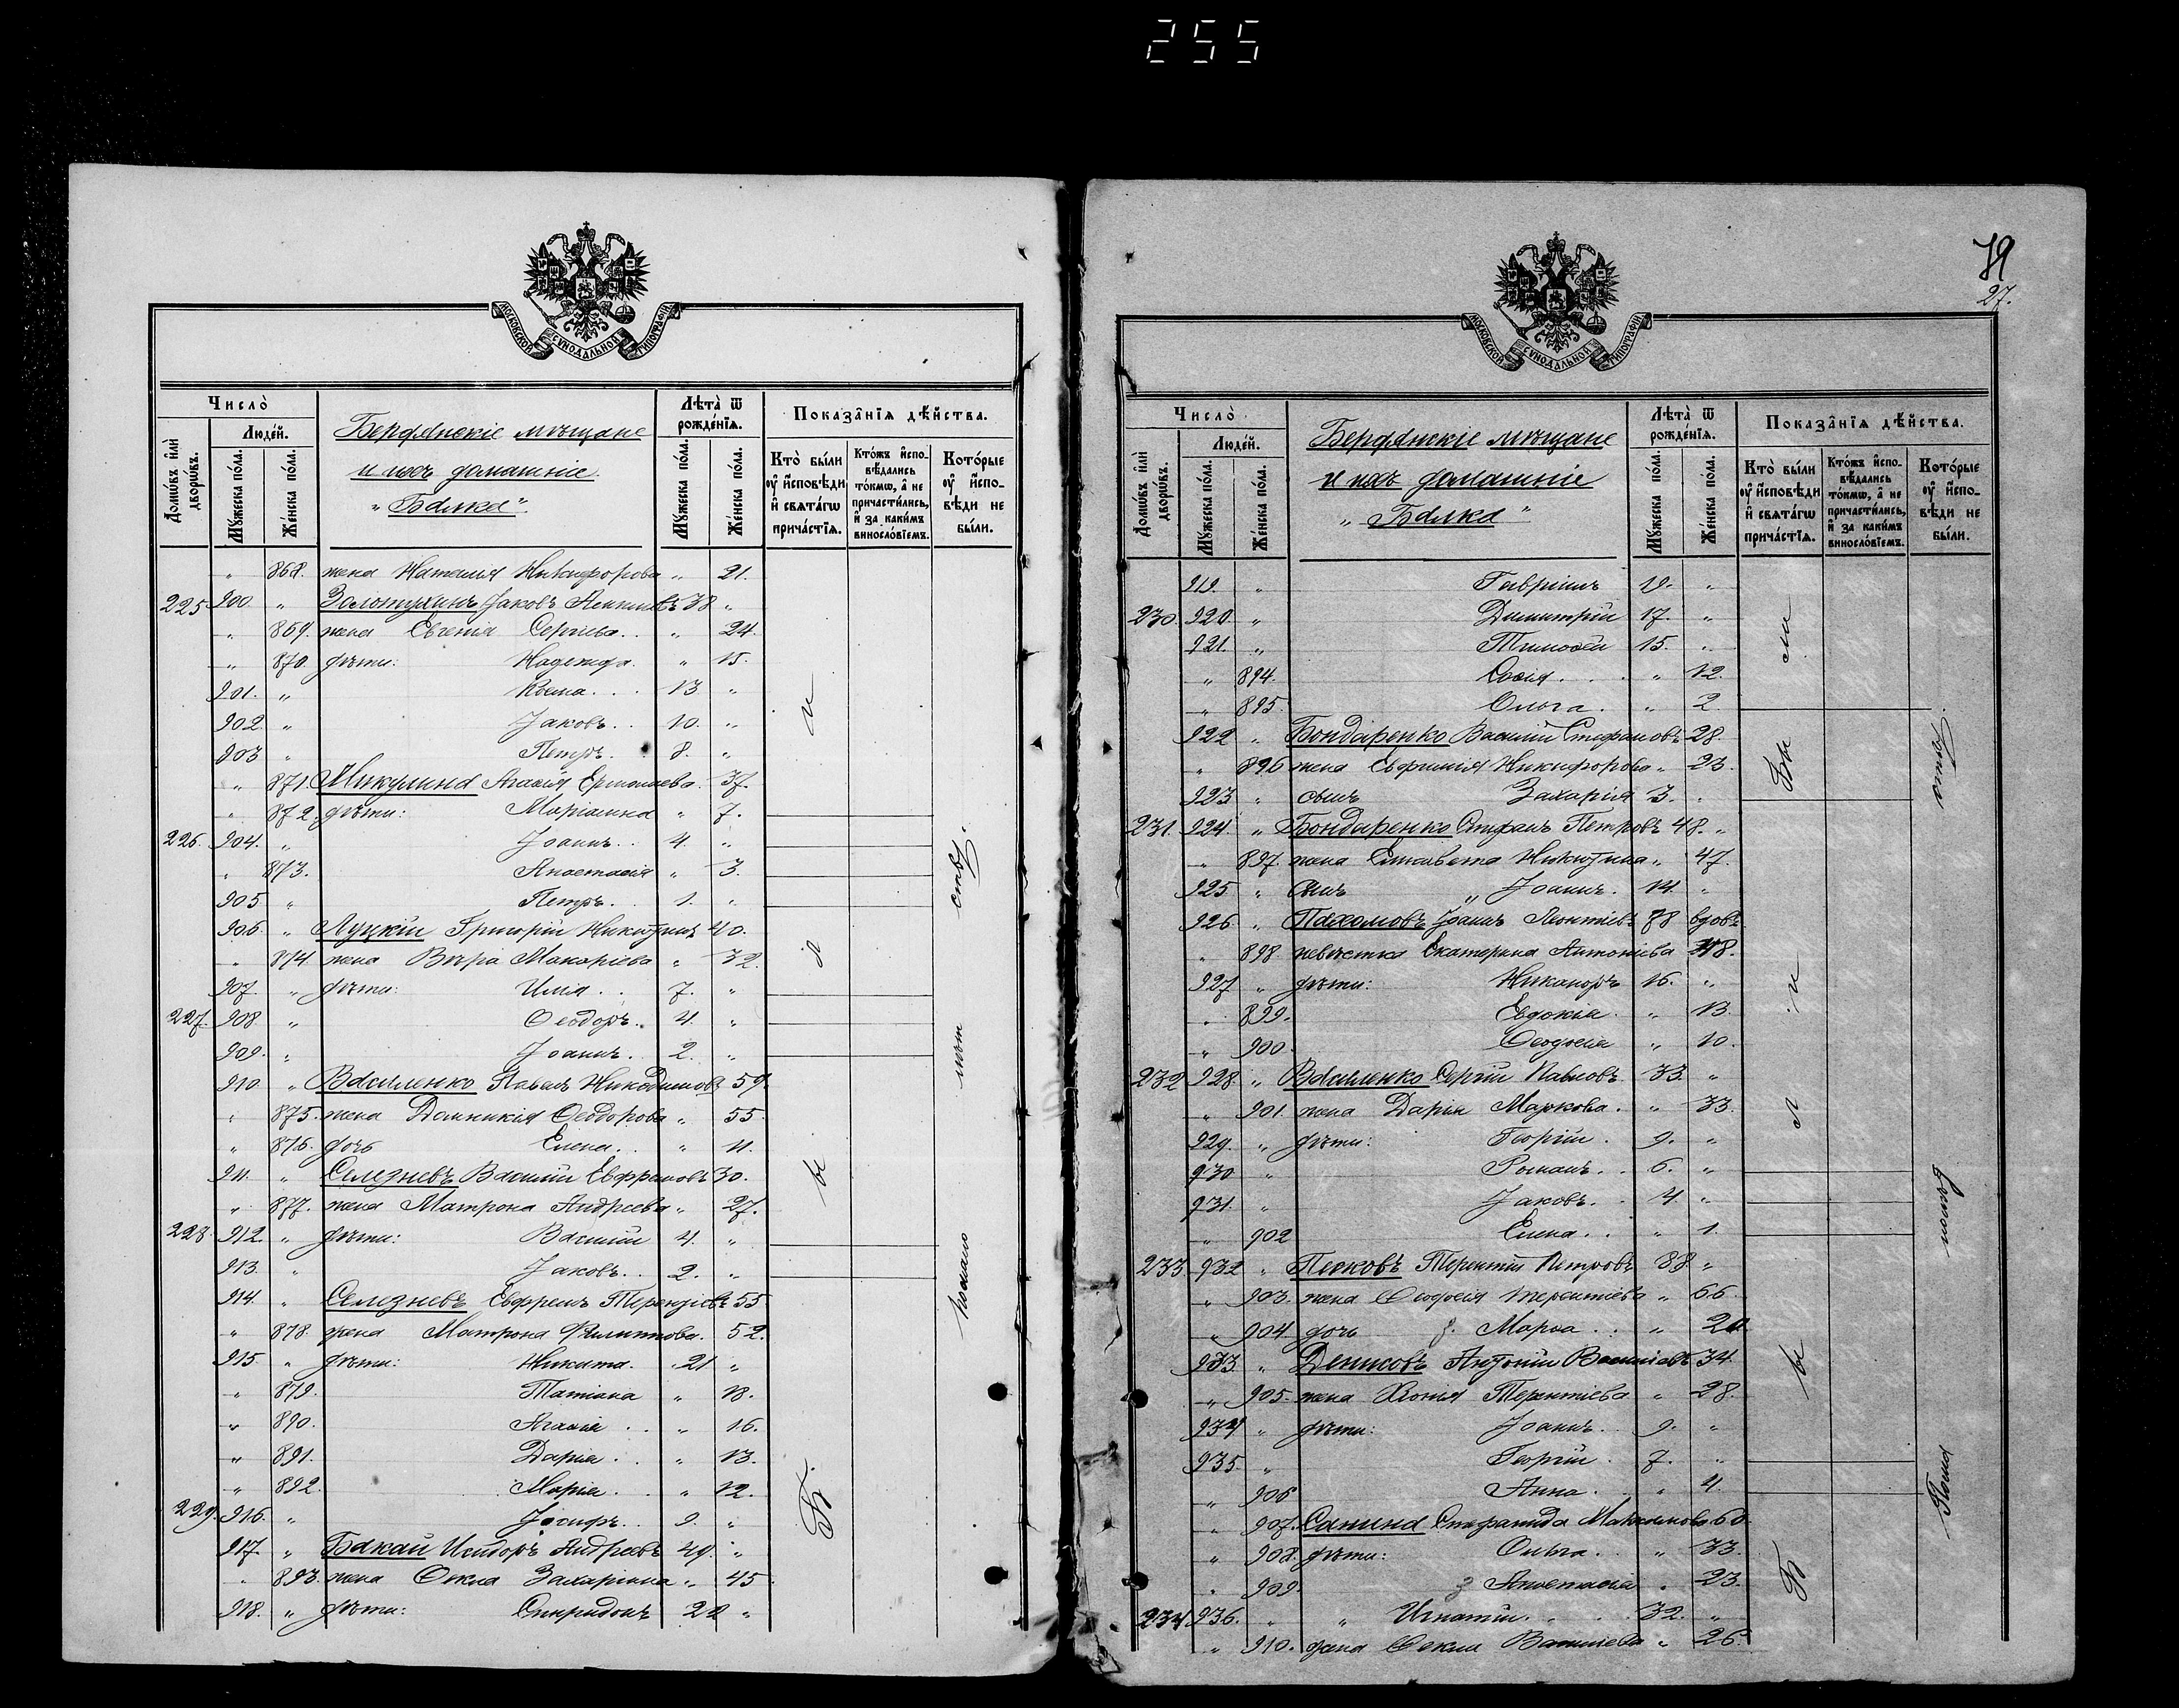 255
МОСКОВСКОЙ СѴНОДАЛЬНОЙ ТИПОГРАФІИ
Число̀
Людей.
Домѡвъ и҆лѝ дворѡвъ.
Мꙋжеска пола.
Женска пола.
Бердянскіе мѣщане
и ихъ домашніе
„Балка“
Лѣта̀ ѿ рожденїѧ.
Мꙋжеска пола.
Женска пола.
Показанїѧ дѣйства.
Кто̀ были ᲂу҆ и҆сповѣди и҆ свѧтагѡ причастїѧ.
Ктожъ и҆сповѣдались токмѡ, а҆ не причастились, и҆ за какимъ винословїемъ.
Которые ᲂу҆ и҆сповѣди не были.
„ 868. жена Наталія Никифорова „ 21.
225. 900. „ Золотухинъ Іаковъ 38 „
„ 869. жена Евгенія Сергіева. „ 24.
„ 870. дѣти: Надежда. „ 15.
901. „ Косма. 13 „
902. „ Іаковъ. 10. „
903 „ Петръ. 8. „
„ 871. Микулина Агаѳія Ермолаева. 37.
„ 872. дѣти: Маріанна „ 7.
226. 904. „ Іоаннъ. 4. „
„ 873. Анастасія „ 3.
905 „ Петръ. 1. „
906 „ Луцкій Григорій Никитинъ 40.
„ 874 жена Вѣра Макаріева „ 32.
907. „ дѣти: Илія. 7. „
227. 908 „ Ѳеодоръ. 4. „
909. „ Іоаннъ. 2. „
910. „ Василенко Павелъ Никодимовъ 59.
„ 875. жена Домникія Ѳеодорова „ 55
„ 876. дочь Елена. „ 11.
911. „ Селезневъ Василій Евфремовъ 30.
„ 877. жена Матрона Андреева „ 27.
228. 912. „ дѣти: Василій 4. „
913. „ Іаковъ. 2. „
914. „ Селезневъ Евфремъ Терентіевъ 55
„ 878. жена Матрона Филиппова. 52.
915. „ дѣти: Никита. 21 „
„ 879. Татіана „ 18.
„ 890. Агаѳія „ 16.
„ 891. Дарія. „ 13.
„ 892. Марія. „ 12.
229. 916. „ Іосифъ. 9. „
917. „ Бакай Исидоръ Андреевъ 49. „
„ 893. жена Ѳекла Захаріина „ 45
918. „ дѣти: Спиридонъ 22 „
Б. ы л и
по мало лѣт ству.
79
27.
МОСКОВСКОЙ СѴНОДАЛЬНОЙ ТИПОГРАФІИ
Число̀
Людей.
Домѡвъ и҆лѝ дворѡвъ.
Мꙋжеска пола.
Женска пола.
Бердянскіе мѣщане
и ихъ домашніе
„Балка“
Лѣта̀ ѿ рожденїѧ.
Мꙋжеска пола.
Женска пола.
Показанїѧ дѣйства.
Кто̀ были ᲂу҆ и҆сповѣди и҆ свѧтагѡ причастїѧ.
Ктожъ и҆сповѣдались токмѡ, а҆ не причастились, и҆ за какимъ винословїемъ.
Которые ᲂу҆ и҆сповѣди не были.
919. „ Гавріилъ 19. „
230. 920. „ Димитрій 17. „
921. „ Тимоѳей 15. „
„ 894. Софія. „ 12.
„ 895. Ольга. „ 2
922 „ Бондаренко Василій Стефановъ 28.
„ 896 жена Евфимія Никифорова „ 23.
923 „ сынъ Захарія 3. „
231. 924. „ Бондаренко Стефанъ Петровъ 48. „
„ 897. жена Елисавета Никитина „ 47.
925 „ сынъ „ Іоаннъ. 14. „
926. „ Пахомовъ Іоаннъ Леонтіевъ 78 вдовъ
„ 898 невѣстка Екатерина Антоніева 48.
927 „ дѣти: Никаноръ 16. „
„ 899. Евдокія. „ 13.
„ 900. Ѳеодосія „ 10.
232 928. „ Василенко Сергій Павловъ 33 „
„ 901. жена Дарія Маркова. „ 33.
929. „ дѣти: Георгій. 9. „
930 „ Романъ. 6. „
931. „ Іаковъ. 4. „
„ 902 Елена. „ 1.
233 932 „ Песковъ Терентій Петровъ 88 „
„ 903. жена Ѳеодосія Терентіева „ 66.
„ 904 дочь Марѳа. „ 20
933. „ Денисовъ Антоній Василіевъ 34.
„ 905. жена Терентіева „ 28.
934 „ дѣти: Іоаннъ. 9. „
935. „ Георгій. 7. „
„ 906 Анна. „ 4.
„ 907. Санина Стефанида Максимова 60
„ 908. дѣти: Ольга. „ 33.
„ 909. Анастасія „ 23.
234 936. „ „ Игнатій. 32. „
„ 910. жена Ѳекла Василіева „ 26.
Б ы л и
Бы ли